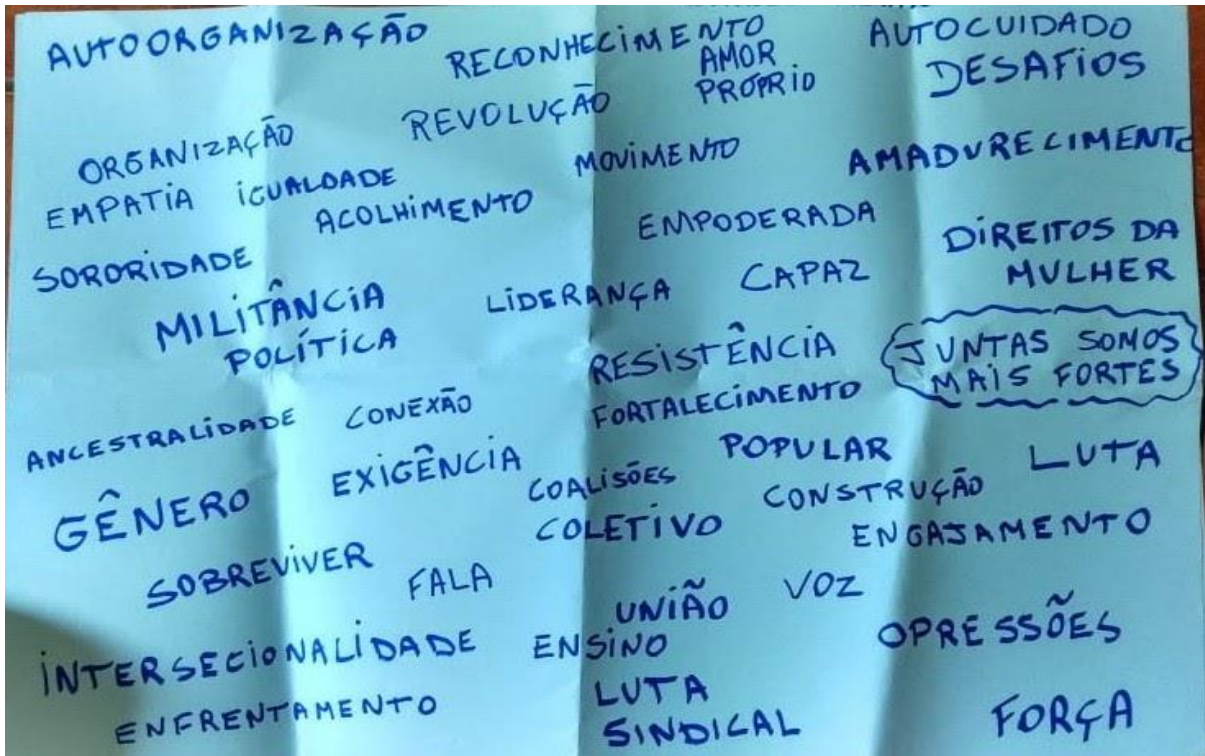 AUTOORGANIZAÇÃO
RECONHECIMENTO
AUTOCUIDADO
AMOR
PRÓPRIO
DESAFIOS
REVOLUÇÃO
ORGANIZAÇÃO
MOVIMENTO
AMADURECIMENTO
EMPATIA IGUALDADE
ACOLHIMENTO
EMPODERADA
DIREITOS DA
MULHER
SORORIDADE
MILITÂNCIA
POLÍTICA
LIDERANÇA
CAPAZ
RESISTÊNCIA
FORTALECIMENTO
JUNTAS SOMOS
MAIS FORTES
ANCESTRALIDADE
CONEXÃO
POPULAR
LUTA
GÊNERO
EXIGÊNCIA
COALISÕES
CONSTRUÇÃO
COLETIVO
ENGAJAMENTO
SOBREVIVER
FALA
UNIÃO
VOZ
OPRESSÕES
INTERSECIONALIDADE
ENSINO
ENFRENTAMENTO
LUTA
SINDICAL
FORÇA